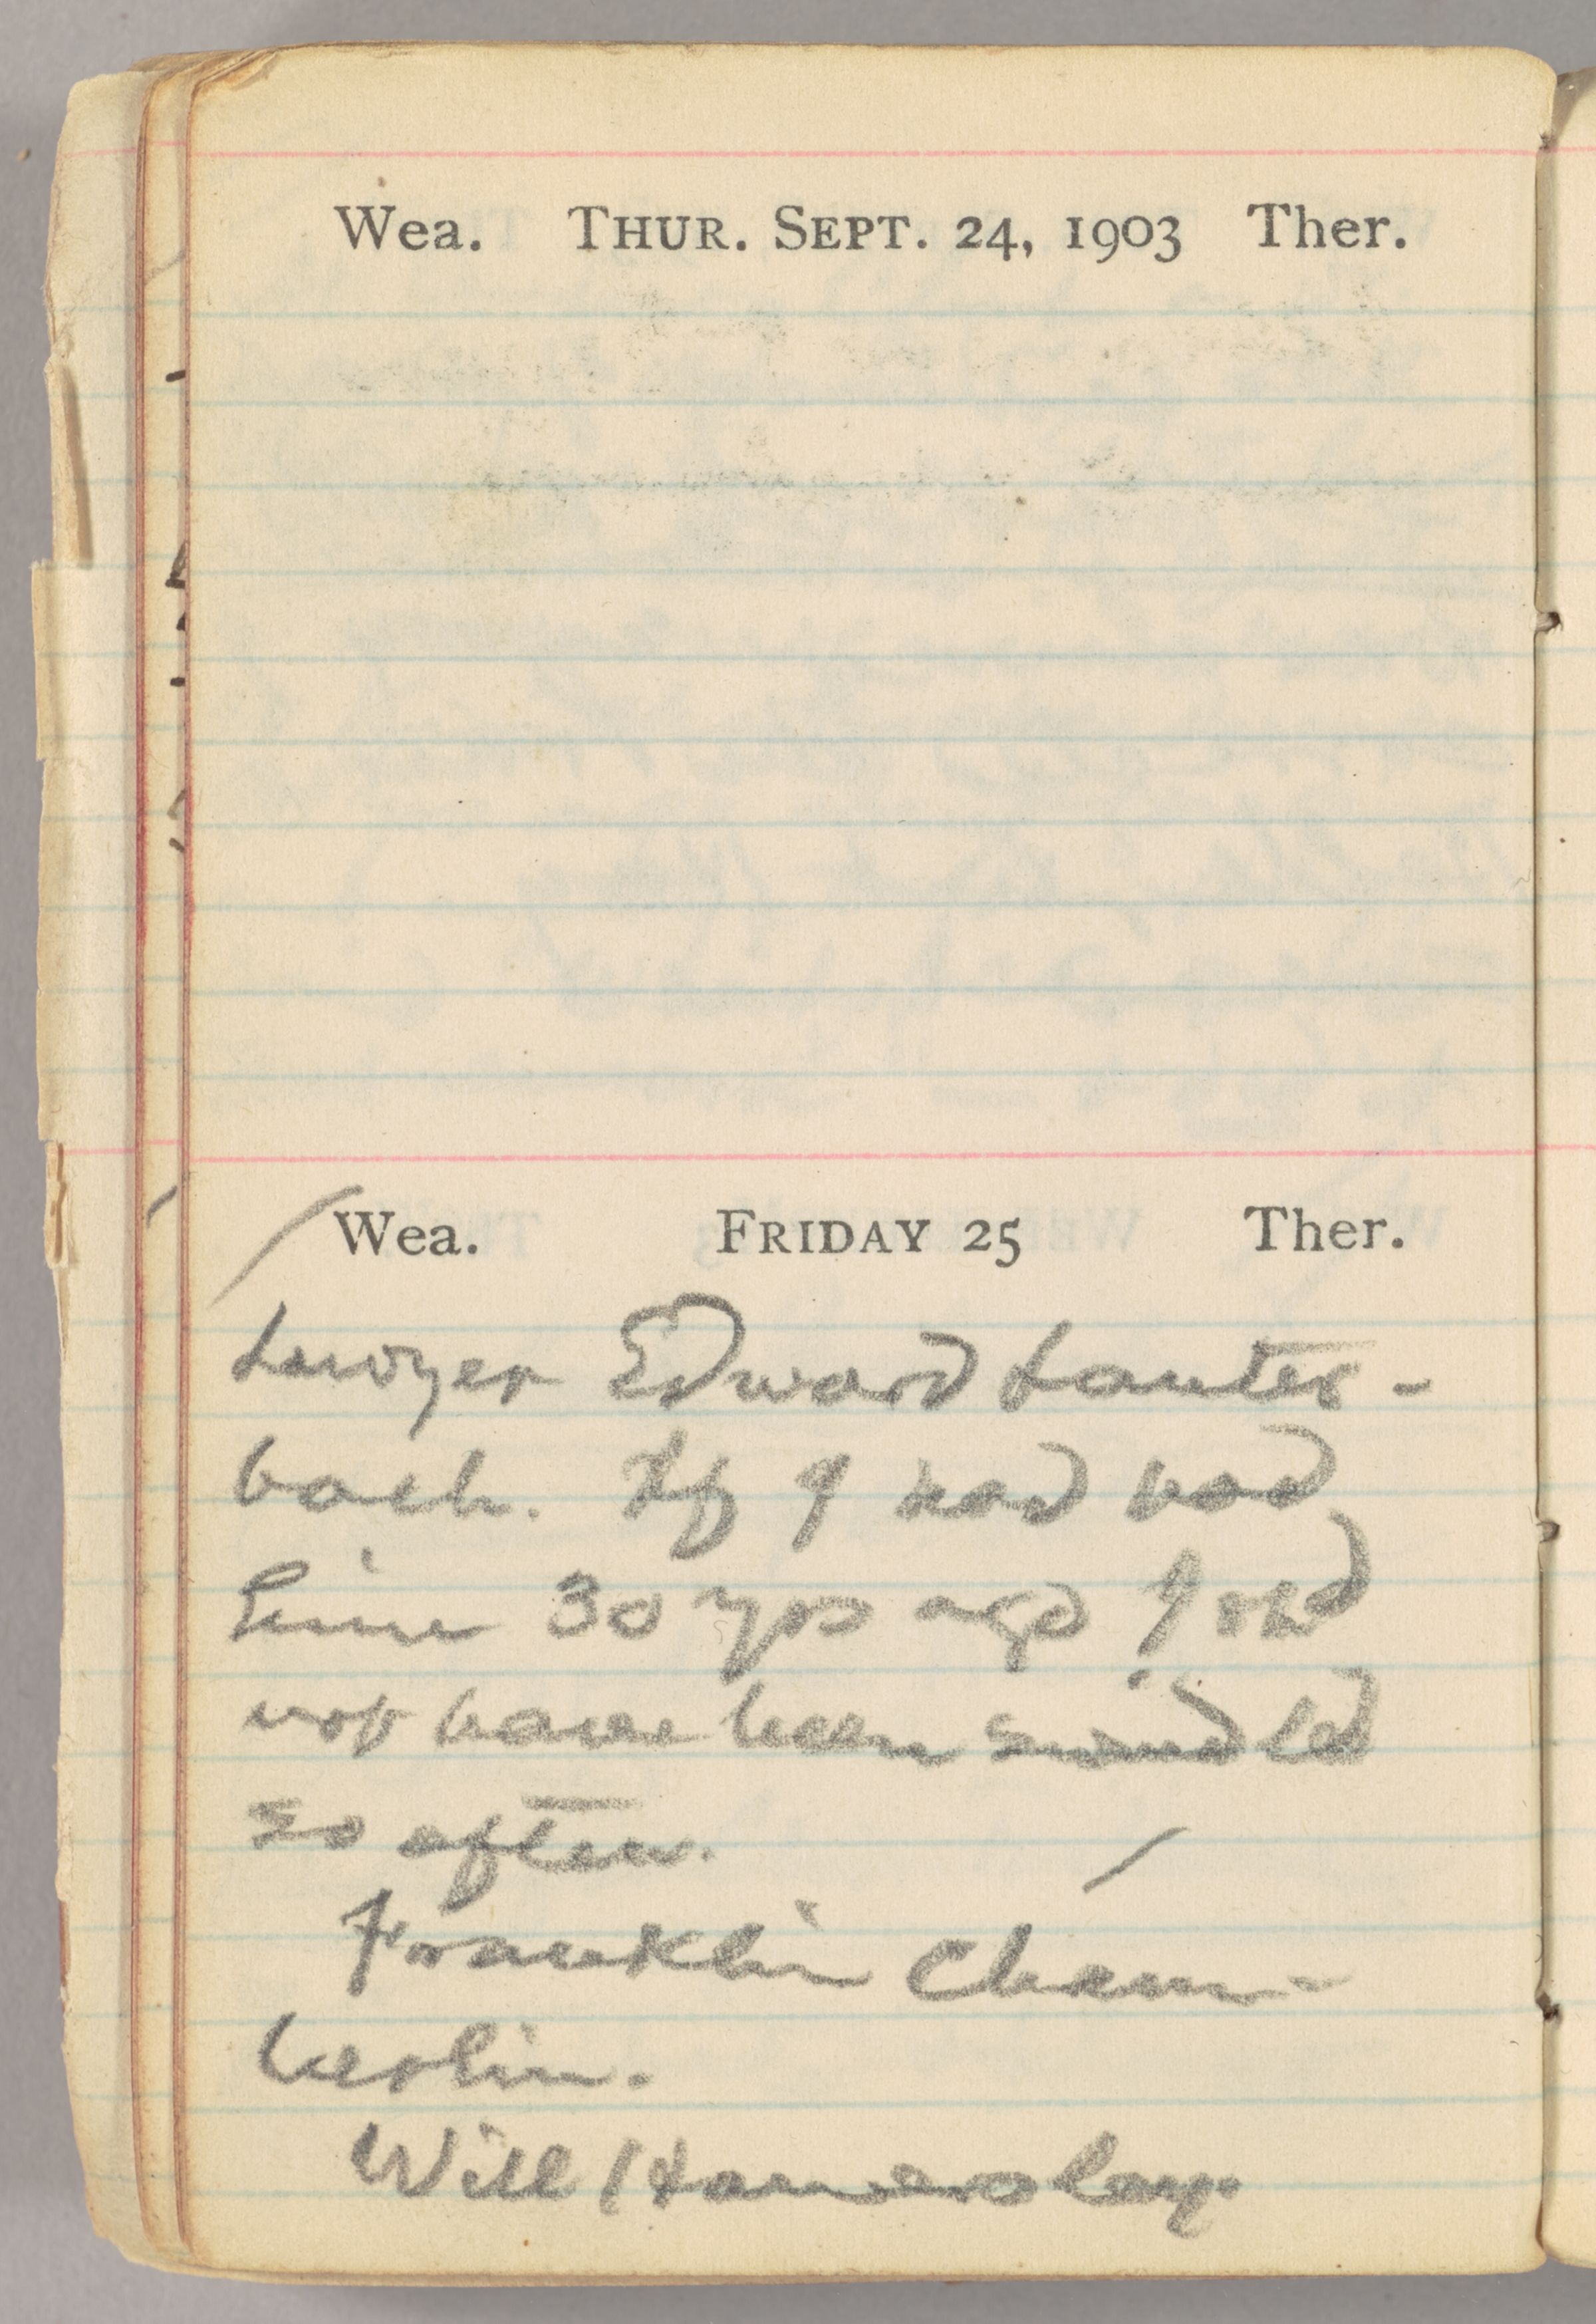 Wea. THUR. SEPT. 24, 1903 Ther.
Wea. FRIDAY 25 Ther.
Lawyer Edward Lauter-
bach. If I had had
him 30 yrs ago I shd
not have been swindled
so often.
Franklin Cham-
berlin.
Will Hamersley.